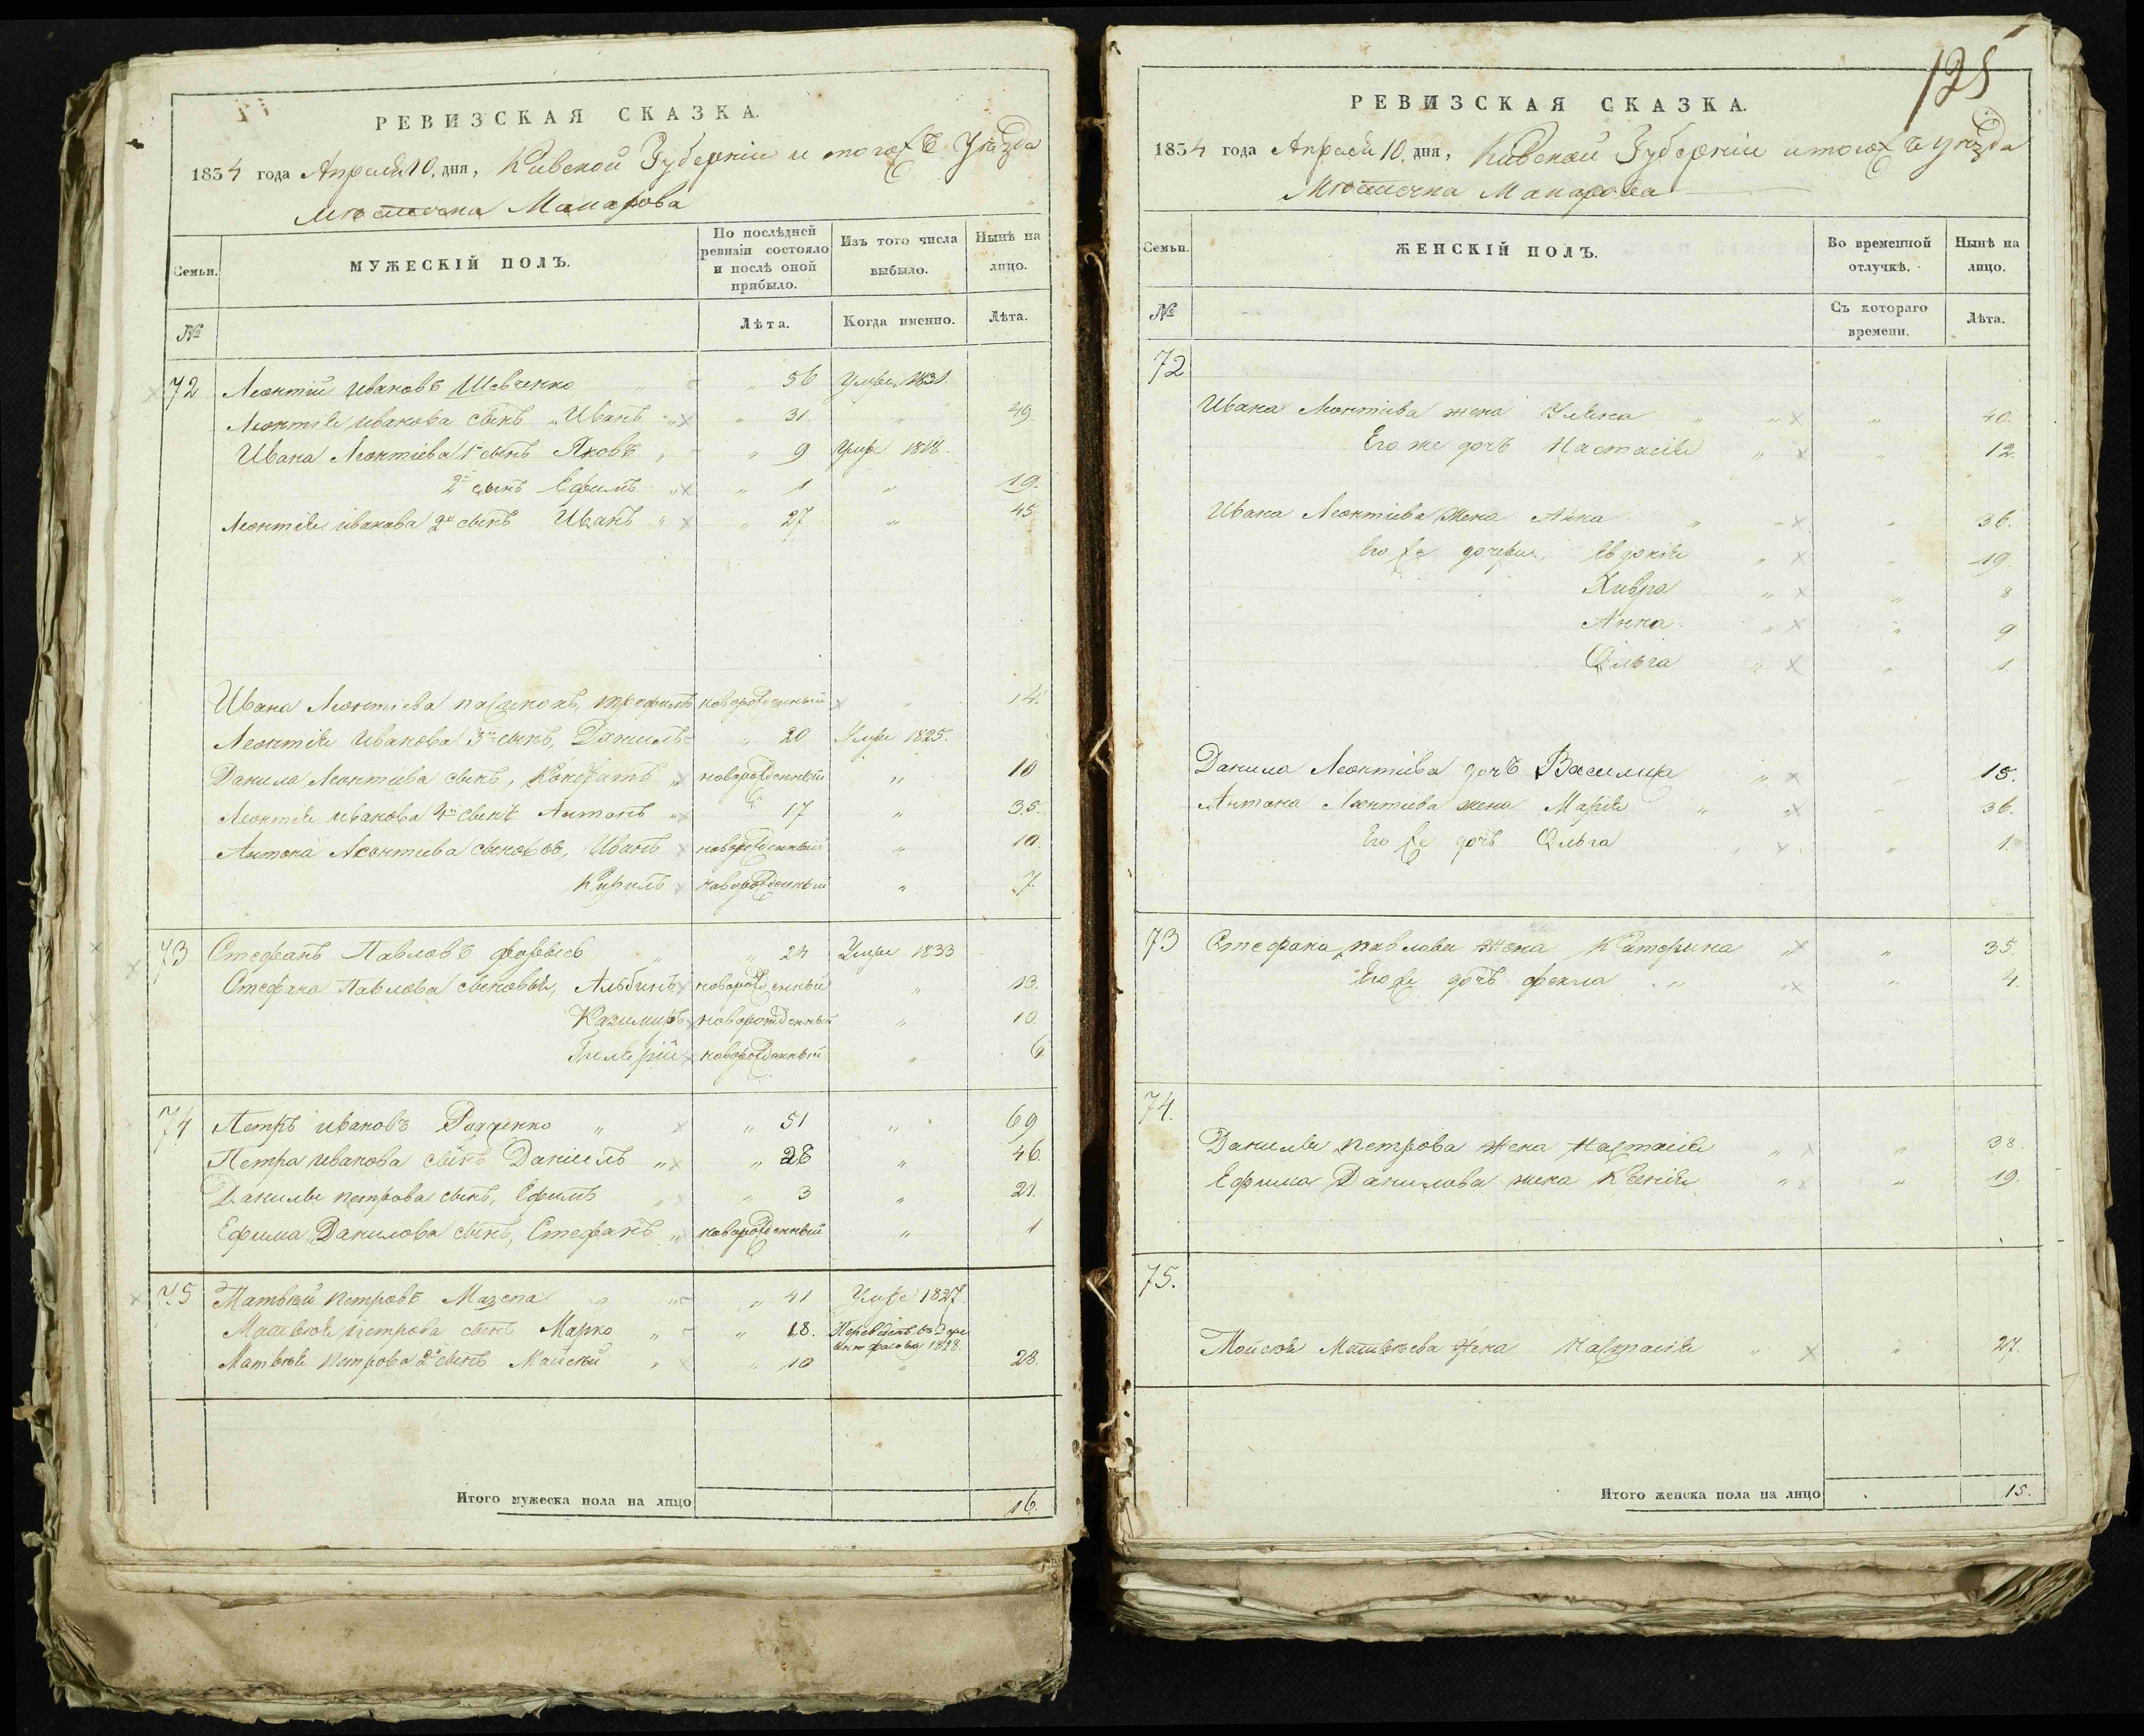 РЕВИЗСКАЯ СКАЗКА.
1834 года Апреля 10. дня, Кіевской Губерніи и тогожъ Уѣзда
Мѣстечка Макарова
Семьи.
МУЖЕСКІЙ ПОЛЪ.
По послѣдней ревизіи состояло и послѣ оной прибыло.
Изъ того числа выбыло.
Нынѣ на лицо.
№
Лѣта.
Когда именно.
Лѣта.
72 Леонтій Ивановъ Шевченко " 56 Умре 1831.
Леонтія Иванова сынъ Иванъ " 31. " 49
Ивана Леонтіева 1й сынъ Яковъ " 9 Умре 1818.
2й сынъ Ефимъ " 1 " 19.
Леонтія Иванова 2й сынъ Иванъ " 27 " 45
Ивана Леонтіева пасынокъ, Трофимъ новорожденный " 14.
Леонтія Иванова 3й сынъ, Данилъ " 20 Умре 1825.
Данила Леонтіева сынъ, Кондратъ " новорожденный " 10
Леонтія Иванова 4й сынъ Антонъ " 17 " 35.
Антона Леонтіева сыновья, Иванъ новорожденный " 10.
Кирилъ новорожденный " 7.
73 Стефанъ Павловъ " 24 Умре 1833
Стефана Павлова сыновья, Альбинъ новорожденный " 13.
Казимиръ новорожденный " 10.
новорожденный " 6
74 Петръ Ивановъ Радченко " " 51 " 69
Петра Иванова сынъ Даніилъ " " 28 " 46.
Данилы Петрова сынъ, Ефимъ " " 3 " 21.
Ефима Данилова сынъ, Стефанъ " новорожденный " 1
75 Матвѣй Петровъ Мазепа " " 41 Умре 1827.
Матвѣя Петрова сынъ Марко " " 18. 1828.
Матвѣя Петрова 2й сынъ Мойсѣй " " 10 " 28.
Итого мужеска пола на лицо 16.
125
РЕВИЗСКАЯ СКАЗКА.
1834 года Апреля 10. дня, Кіевской Губерніи и тогожъ уѣзда
Мѣстечка Макарова
Семьи.
ЖЕНСКІЙ ПОЛЪ.
Во временной отлучкѣ.
Нынѣ на лицо.
№
Съ котораго времени.
Лѣта.
72
Ивана Леонтіева жена Уляна " " " 40.
Его же дочъ Настасія " " 12.
Ивана Леонтіева жена Анна " " " 36.
Его же дочери, Евдокія " " 19.
Хивра " " 8
Анна " " 9
Ольга " " 1.
Данила Леонтіева дочъ Василиса " 15.
Антона Леонтіева жена Марія " " " 36.
Его же дочъ Ольга " 1.
73 Стефана Павлова жена Катерина " " 35.
Его же дочъ Фекла " " " 4.
74.
Данилы Петрова жена Настасія " " 38.
Ефима Данилова жена Ксенія " " 19.
75.
Мойсѣя Матвѣева жена Настасія " " 27.
Итого женска пола на лицо 15.